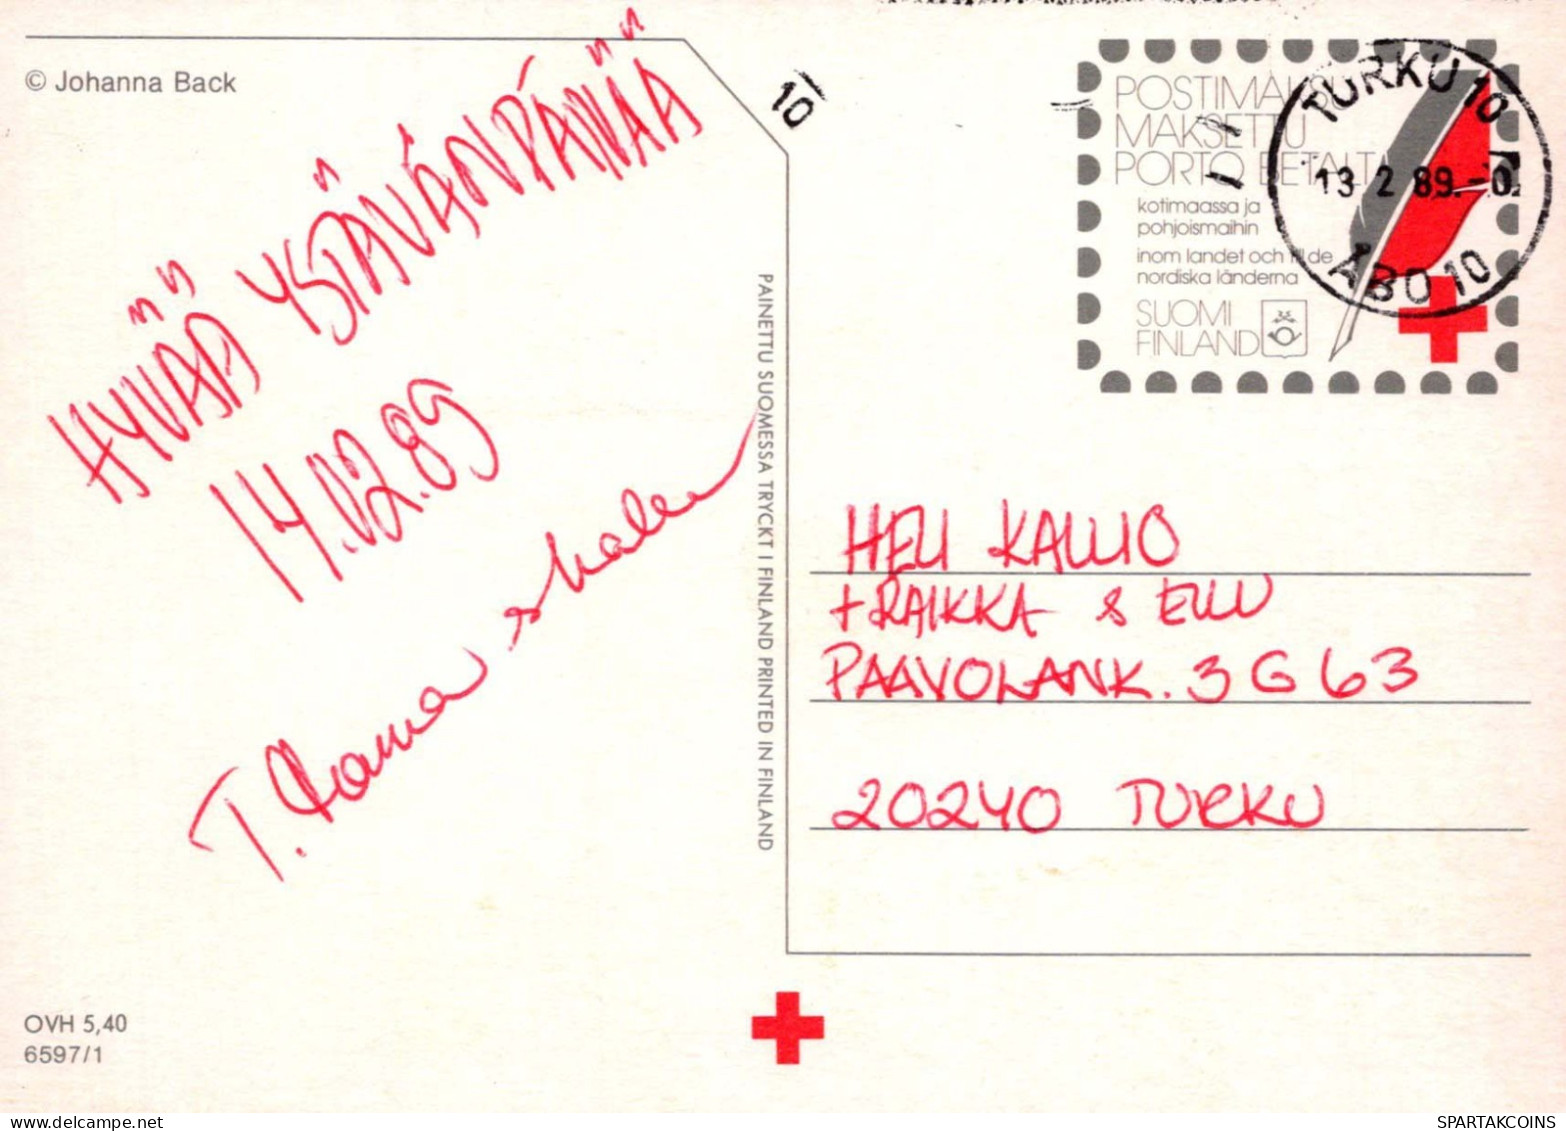 © Johanna Back
HYVÄÄ YSTÄVÄNPÄIVÄÄ
14.02.89
T.
OVH 5,40
6597/1
PAINETTU SUOMESSA TRYCKT I FINLAND PRINTED IN FINLAND
10
POSTIMAKSU
MAKSETTU
PORTO BETALT
kotimaassa ja
pohjoismaihin
inom landet och till de
nordiska länderna
SUOMI
FINLAND
TURKU 10
13.2.89.-0
ÅBO 10
HELI KALLIO
+ RAIKKA & ELLU
PAAVOLANK. 3 G 63
20240 TURKU
SPARTAKCOINS